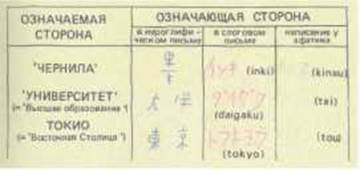 ОЗНАЧАЕМАЯ СТОРОНА
ОЗНАЧАЮЩАЯ СТОРОНА
в иероглифическом письме
в слоговом письме
написание у афатика
'ЧЕРНИЛА'
(inki)
(kinsu)
'УНИВЕРСИТЕТ'
(= "Высшее образование")
大 学
(daigaku)
(tai)
ТОКИО
(= "Восточная Столица")
東 京
(tokyo)
(tou)